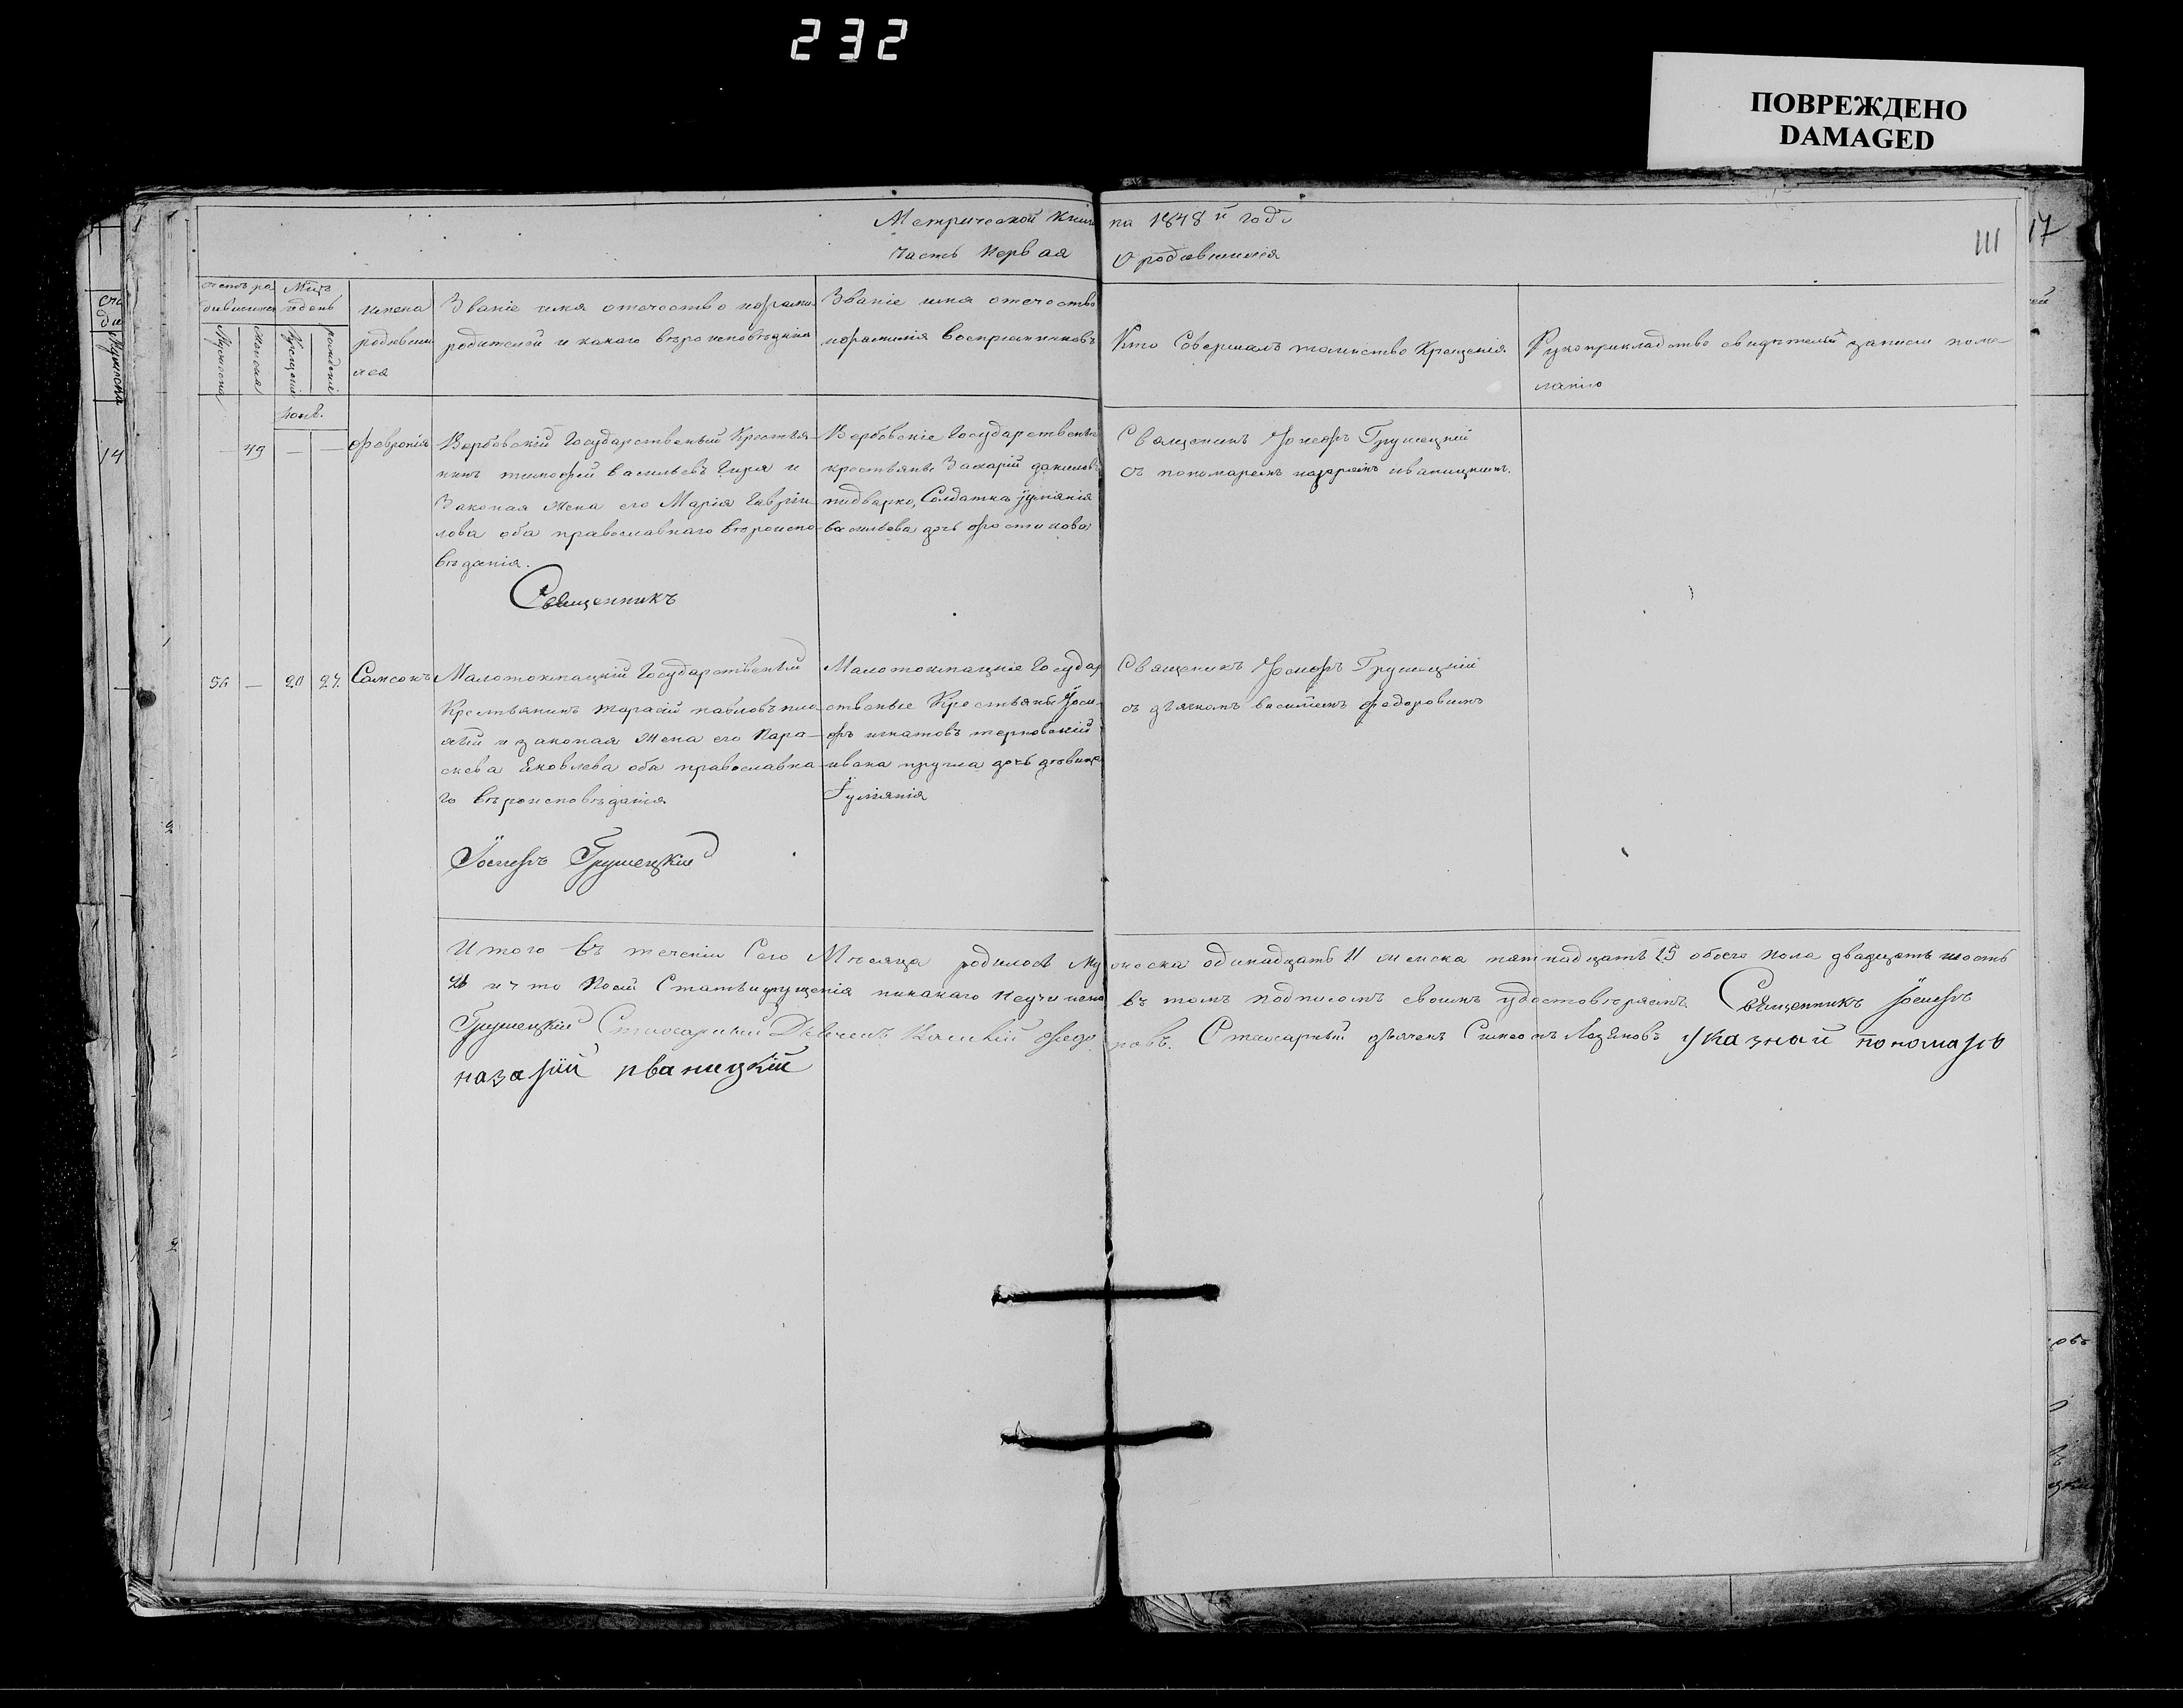 232
ПОВРЕЖДЕНО
DAMAGED
Метрической Книги на 1848й годъ
III 17
Часть Первая О родившихся
счетъ ро Мцъ
дившихся и день
имена
родивши
хся
Званіе имя отечество и фами
родителей и какого вероисповѣданія
Званіе имя отечество
и фамилія воспріемниковъ
Кто Совершалъ таинство Крещенія
Рукоприкладство свидѣтелей записи поже
ланію
Мужеска
Женска
Крещенія
рожденія
14
— 49 — — Февронія
Вербовскій Государственый Крестья
нинъ тимофей васильевъ Гиря и
Законая жена его Марія Гаврии
лова оба православнаго вероиспо
вѣданія.
Вербовскіе Государствены
крестьяны Захарій даниловъ
пидварко, Солдатка Іуліянія
васильева дочь
Священикъ Іосифъ Грушецкій
съ пономаремъ назаремъ иваницкимъ.
Священникъ
56 — 20 27 Самсонъ
Малотокмацкій Государственый
Крестьянинъ тарасій павловъ
и законая жена его Пара
скева Яковлева оба православна
го вероисповѣданія
Малотокмацкіе Государ
ственые Крестьяны Іоси
фъ игнатовъ терновскій
ивана кругла дочь девица
Іуліянія
Священикъ Іосифъ Грушецкій
съ дьячкомъ василіемъ федоровимъ
Іосифъ Грушецкій
Итого въ теченіи Сего Мѣсяца родилось мужеска одинадцать 11 женска пятнадцать 15 обоего пола двадцать шесть
26 и что Посей Статьи упущенія никакого неучинено въ томъ подписомъ своимъ удостовѣряемъ. Священникъ Іосифъ
Грушецкій Стихарный Дьячекъ Василій Федоровъ. Стихарный дьячекъ Симеонъ Лозяновъ Указной пономарь
назарій иваницкій